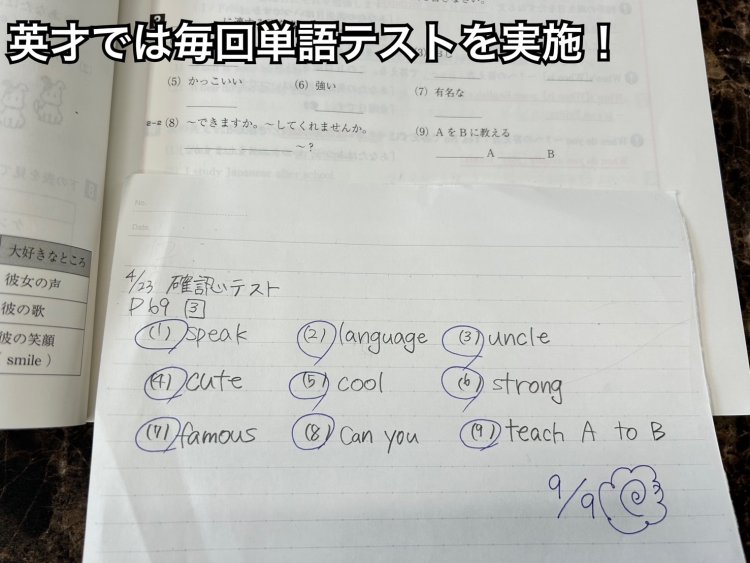 英才では毎回単語テストを実施！
(5) かっこいい (6) 強い (7) 有名な
2-2 (8) ～できますか。～してくれませんか。 (9) AをBに教える
～? A B
大好きなところ
彼女の声
彼の歌
彼の笑顔
smile )
No.
Date.
4/23 確認テスト
P69 3
(1) speak (2) language (3) uncle
(4) cute (5) cool (6) strong
(7) famous (8) Can you (9) teach A to B
9/9